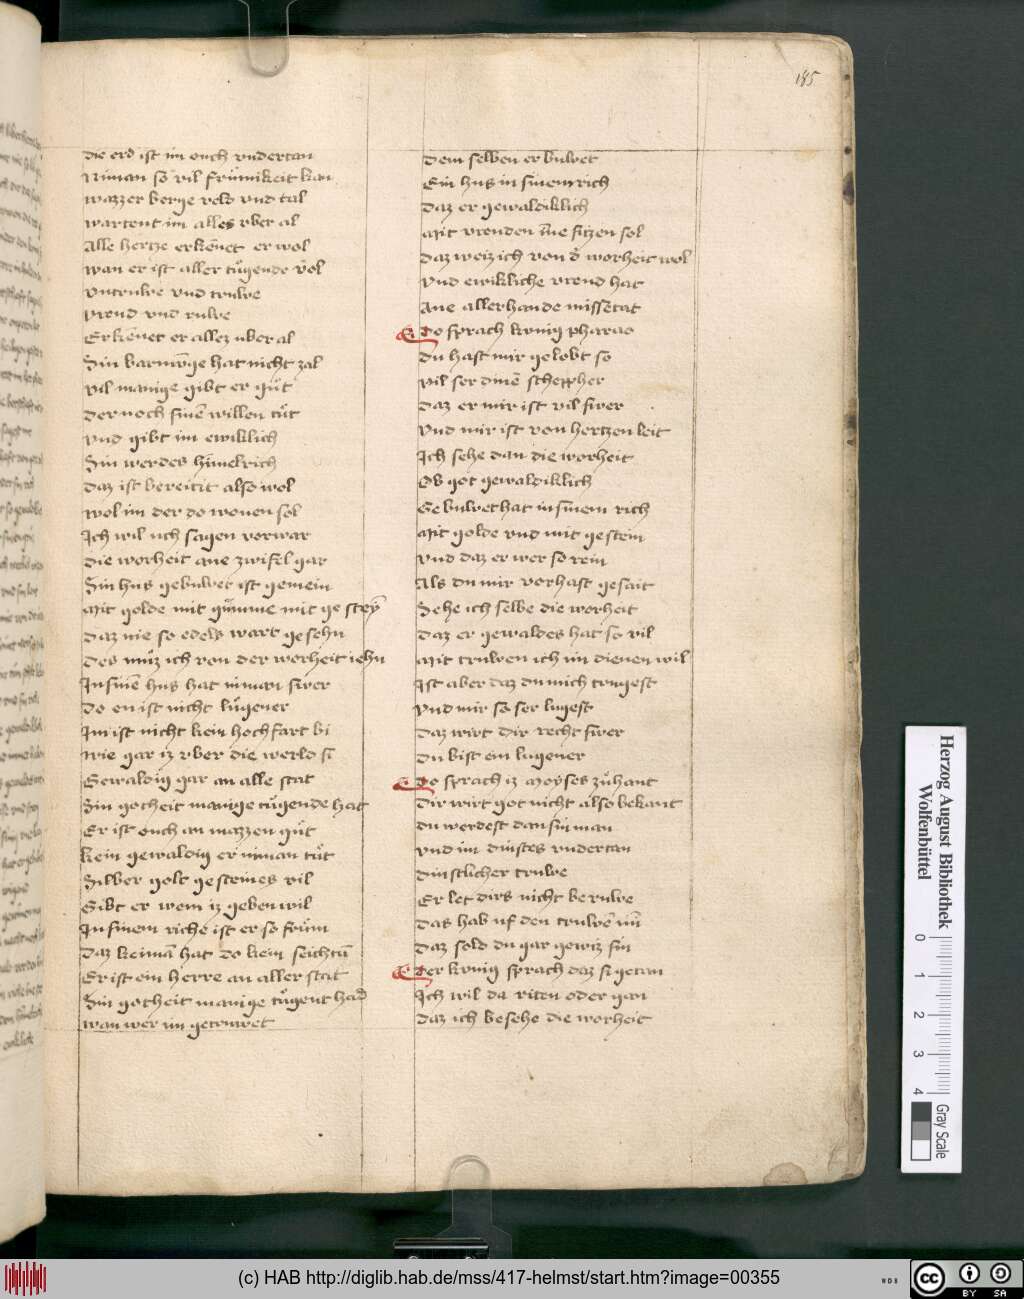 185
die erd ist im ouch vndertan
Niman so vil frümikeit kan
wazzer berge velt vnd tal
wartent im alles vber al
Alle hertze erkēnet er wol
wan er ist aller tůgende vol
vntruwe vnd truwe
vrend vnd ruwe
Erkēnet er allez uber al
Sin barmūge hat nicht zal
vil manige gibt er gůt
der noch sinē willen tůt
vnd gibt im ewiklich
Sin werdes himelrich
daz ist bereitit also wol
wol im der do wonen sol
Ich wil uch sagen vorwar
die worheit ane zwifel gar
Sin hus gebuwet ist gemein
Mit golde mit gimme mit ge steȳ
daz nie so edels wart ge sehn
des můz ich von der worheit iehn
In sinē hus hat niman swer
do en ist nicht lůgener
Im ist nicht kein hochfart bi
wie gar iz vber die werld si
Gewaldig gar an alle stat
Sin gotheit manige tůgende hat
Er ist ouch an mazzen gůt
kein gewaldig er niman tůt
Silber golt gesteines vil
Gibt er wem iz geben wil
In sinem riche ist er so frům
daz keimā hat do kein seichtū
Er ist ein herre an aller stat
Sin gotheit manige tůgent had
wan wer im getruwet
dem selben er buwet
Ein hus in sinem rich
daz er gewaldiklich
Mit vrenden īne sitzen sol
daz weiz ich von d' worheit wol
vnd ewikliche vrend hat
Ane allerhande missetat
Do sprach kunig pharao
du hast mir gelobt so
vil ser dinē schepher
daz er mir ist vil swer
vnd mir ist von hertzen leit
Ich sehe dan die worheit
Ob got gewaldiklich
Gebuwet hat in sinem rich
Mit golde vnd mit gestein
vnd daz er wer so rein
Als du mir vorhast gesait
Sehe ich selbe die worheit
daz er gewaldes hat so vil
Mit truwen ich im dienen wil
Ist aber daz du mich trugest
vnd mir so ser lugest
daz wirt dir recht swer
du bist ein lugener
Do sprach iz Moyses zůhant
dir wirt got nicht also bekant
du werdest dan sin man
vnd im dinstes vndertan
dinstlicher truwe
Er let dirs nicht be ruwe
das hab uf den truwē min
daz sold du gar gewiz sin
Der kunig sprach daz si getan
Ich wil da riten oder gan
daz ich besehe die worheit
Herzog August Bibliothek
Wolfenbüttel
0 1 2 3 4
Gray Scale
(c) HAB http://diglib.hab.de/mss/417-helmst/start.htm?image=00355
WDB
cc BY SA